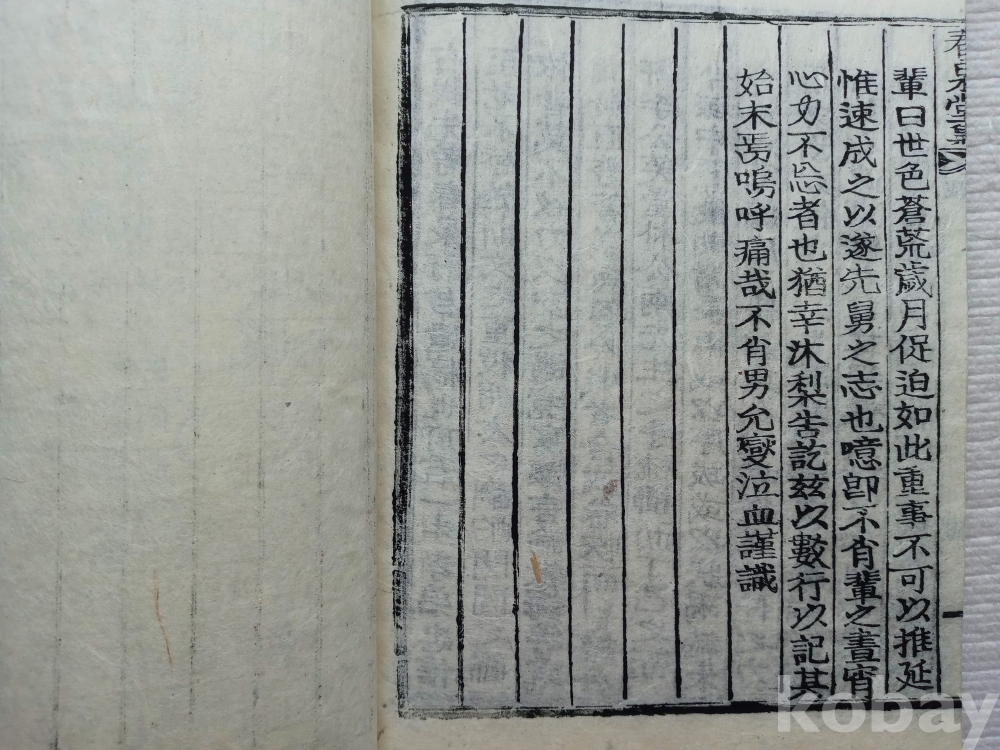 輩曰世色蒼荒歲月促迫如此重事不可以推延
惟速成之以遂先舅之志也噫卽不肖輩之晝宵
心力不忘者也猶幸沐梨告訖玆以數行以記其
始末焉嗚呼痛哉不肖男允燮泣血謹識
kobay